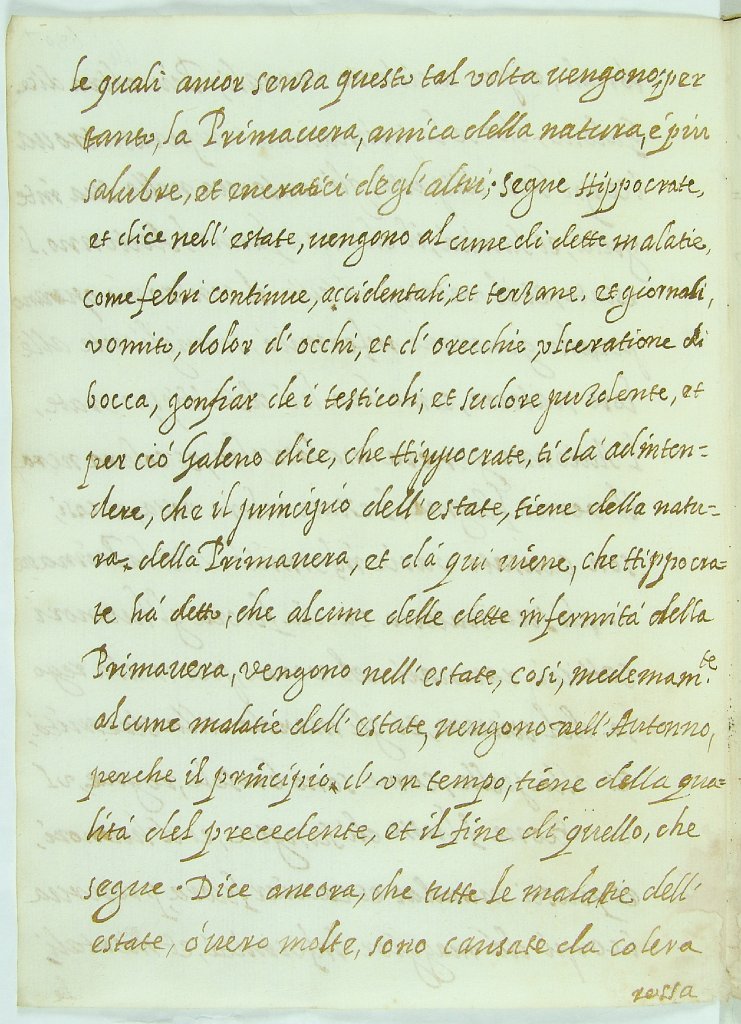 le quali ancor senza questo tal volta vengono; per
tanto, la Primauera, amica della natura, é piu
salubre, et eneratici degl' altri; segue Hippocrate,
et dice nell' estate, uengono alcune di dette malatie,
come febri continue, accidentali, et terzane, et giornali,
vomito, dolor d' occhi, et d' orecchie, vlceratione di
bocca, gonfiar de i testicoli, et sudore purolente, et
per ció Galeno dice, che Hippocrate, ti dá ad inten=
dere, che il principio dell' estate, tiene della natu=
ra della Primauera, et dá qui uiene, che Hippocra=
te há detto, che alcune delle dette infermitá della
Primauera, vengono nell' estate, cosi, medemam.te
alcune malatie dell' estate, uengono nell' Autonno,
perche il principio d' vn tempo, tiene della qua=
litá del precedente, et il fine di quello, che
segue. Dice ancora, che tutte le malatie dell'
estate, óuero molte, sono causate da colera
rossa